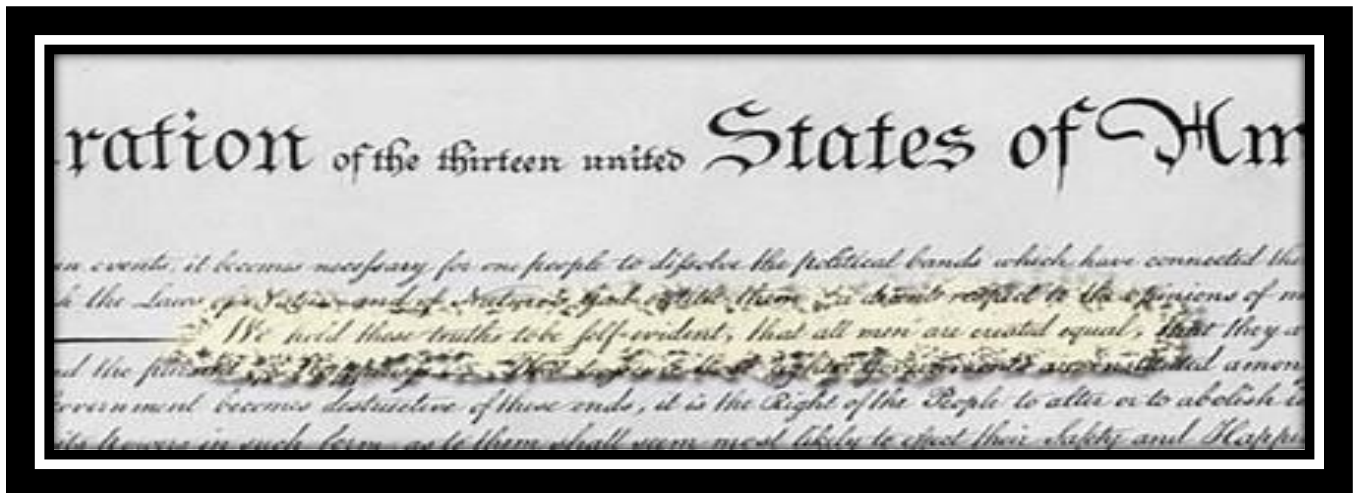 ration of the thirteen united States of Am
en events, it becomes necessary for one people to dissolve the political bands which have connected the
h the Laws of Nature and of Nature's God entitle them, a decent respect to the opinions of m
We hold these truths to be self-evident, that all men are created equal, that they a
nd the pursuit of Happiness. That to Governments are instituted amon
overnment becomes destructive of these ends, it is the Right of the People to alter or to abolish it
its powers in such form, as to them shall seem most likely to effect their Safety and Happi